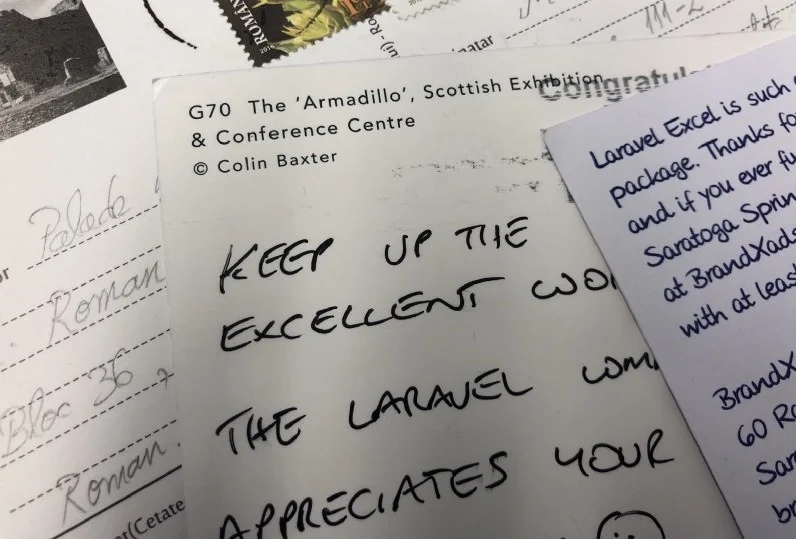 ROMAN
2016
111-2
G70 The 'Armadillo', Scottish Exhibition
& Conference Centre
© Colin Baxter
Congratul
KEEP UP THE
EXCELLENT WO
THE LARAVEL COM
APPRECIATES YOUR
Laravel Excel is such
package. Thanks fo
and if you ever fu
Saratoga Sprin
at BrandXads
with at leas
BrandX
60 Ro
Sar
br
Roman
Bloc 36,
Roman
(Cetate